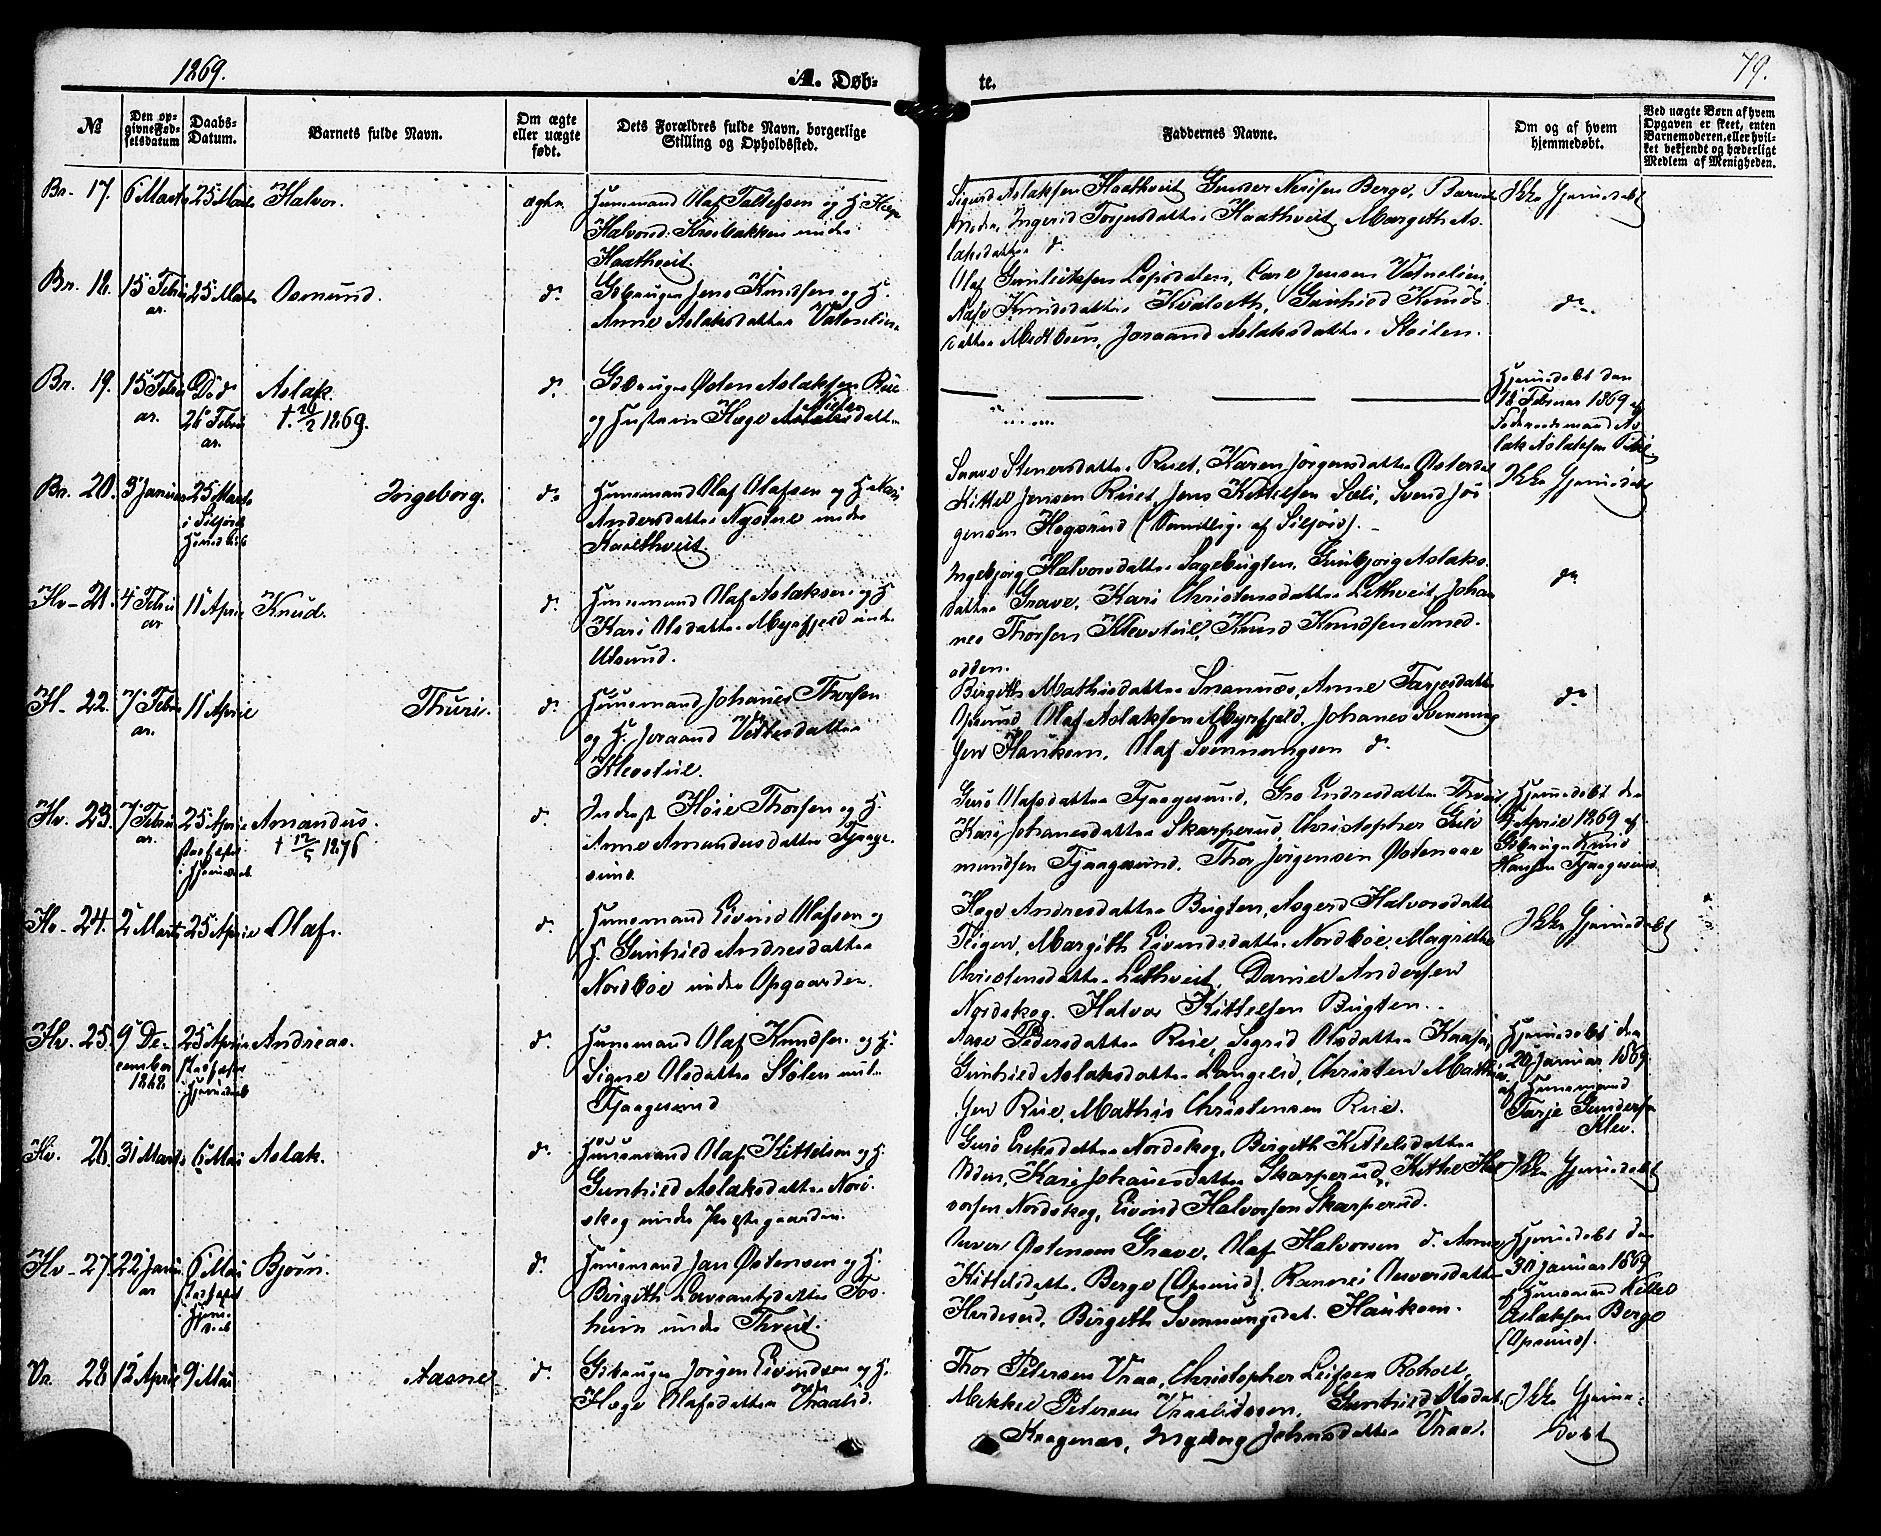 1869.
A. Døb-
te.
79.
№
Den op-
givne Fød-
selsdatum
Daabs-
Datum.
Barnets fulde Navn.
Om ægte
eller uægte
født.
Dets Forældres fulde Navn, borgerlige
Stilling og Opholdssted.
Faddernes Navne.
Om og af hvem
hjemmedøbt.
Ved uægte Børn af hvem
Opgaven er skeet, enten
Barnemoderen, eller hvil-
ket bekjendt og hæderligt
Medlem af Menigheden.
Br. 17. 6 Marts 25 Marts Halvor. ægte
Huusmand Olaf Tallefsen og H. Hæge
Halvorsd: Krosbakken under
Haathveit.
Sigurd Aslaksen Haathveit, Gunder Berge, Barnets
Moder, Ingerid Torjusdatter Haathveit, Margith As-
laksdatter d.
Ikke Hjemmedøbt
Br. 18. 15 Febru
ar. 25 Marts Osmund. do
Gdbruger Jens Knudsen og H.
Anne Aslaksdatter Vatnelien
Olaf Gunleiksen Lofsdalen, Jensen Vatnelien,
Knudsdatter Kvalseth, Gunhild Knuds-
datter Midtbøen, Joraand Aslaksdatter Støilen.
do
Br. 19. 15 Febru
ar. Død
26 Febru
ar. Aslak.
† 26/2 1869. do
Gdbruger Østen Aslaksen Rue
og Hustru Hæge datter
Hjemmedøbt den
18 Februar 1869 af
mand As-
lak Aslaksen
Br. 20. 3 Januar 25 Marts
i Siljord
Ingeborg. do
Huusmand Olaf Olafsen og H. Kari
Andersdatter Nystue under
Haathveit
Saave Stenersdatter Ruet, Karen Jørgensdatter
Kittel Jensen Ruet, Jens Kittelsen Sæli, Svend Jør-
gensen Hegsrud (Samtlige af Siljord).
Ikke Hjemmedøbt
Hv. 21. 4 Febru
ar 11 April Knud. do
Huusmand Olaf Aslaksen og H.
Kari Olsdatter Myrfjeld under
Utsund.
Ingebjørg Halvorsdatter Sagebugten, Gunbjørg Aslaks-
datter Grave, Kari Christensdatter Lethveit, Johan-
nes Thorsen Klevstuel, Knud Knudsen Smed-
odden.
do
H. 22. 7 Febru
ar. 11 April Thuri. do
Huusmand Johanes Thorsen
og H. Joraand Vetlesdatter
Klevstuel.
Birgith Mathisdatter Snarnæs, Anne Tarjesdatter
Opsund, Olaf Aslaksen Myrfjeld, Johanes Svennung-
sen Haukom, Olaf Svennungsen d.
do
Hv. 23. 7 Febru
ar. 25 April
stadfæstet
Hjemmedaab Amandus.
† 12/5 1876 do
Inderst Høie Thorsen og H.
Anne Amundsdatter Fjaage-
sund.
Guro Olafsdatter Fjaagesund, Gro Endresdatter Thveit,
Kari Johanesdatter Skarperud, Christopher Gul-
mundsen Fjaagesund, Thor Jørgensen Østenaae
Hjemmedøbt den
April 1869 af
Gdbruger Knud
Hansen Fjaagesund
Hv. 24. 2 Marts 25 April Olaf. do
Huusmand Eivind Olafsen og
H. Gunhild Andresdatter
Nordbøe under Opgaarden.
Hæge Andresdatter Bugten, Asgerd Halvorsdatter
Teigen, Margith Eivindsdatter Nordbøe, Magrethe
Christensdatter Lethveit, Daniel Andersen
Nordskog, Halvor Kittelsen Bugten.
Ikke Hjemmedøbt
Hv. 25. 9 De-
cember
1868 25 April
stadfæstet
Hjemmedaab Andreas. do
Huusmand Olaf Knudsen og H.
Signe Olsdatter Stølen ved
Fjaagesund
Aase Pedersdatter Rue, Sigrid Olsdatter Kaasa,
Gunhild Aslaksdatter Langelid, Christen Mathi-
sen Rue, Mathis Christensen Rue.
Hjemmedøbt den
20 Januar 1869
af Huusmand
Tarje Gundersen
Klev.
Hv. 26. 31 Marts 6 Mai Aslak. do
Huusmand Olaf Kittelsen og H.
Gunhild Aslaksdatter Nord-
skog under Præstegaarden.
Guro Eriksdatter Nordskog, Birgith Kittelsdatter
Odden, Kari Johanesdatter Skarperud, Kittel Hal-
vorsen Nordskog, Eivind Halvorsen Skarperud.
Ikke Hjemmedøbt
Hv. 27. 22 Janu
ar 6 Mai
stadfæstet
Hjemme-
daab Bjørn. do
Huusmand Jan Østensen og H.
Birgith datter Fos-
heim under Thveit.
Østensen Grave, Olaf Halvorsen d. Anne
Kittelsdatter Berge (Opsund), Rannei datter
Birgith Svennungsdat. Haukom.
Hjemmedøbt den
30 Januar 1869
af Huusmand Kittel
Aslaksen Berge
(Opsund).
Vr. 28. 12 April 9 Mai Aasne do
Gdbruger Jørgen Eivindsen og H.
Hæge Olafsdatter Vraalid.
Thor Petersen Vraa, Christopher Leifsen Roholt,
Mikkel Petersen Vraaliosen, Gunhild Olsdat.
Kragenæs, Ingeborg Johnsdatter Vraa.
Ikke Hjemme-
døbt